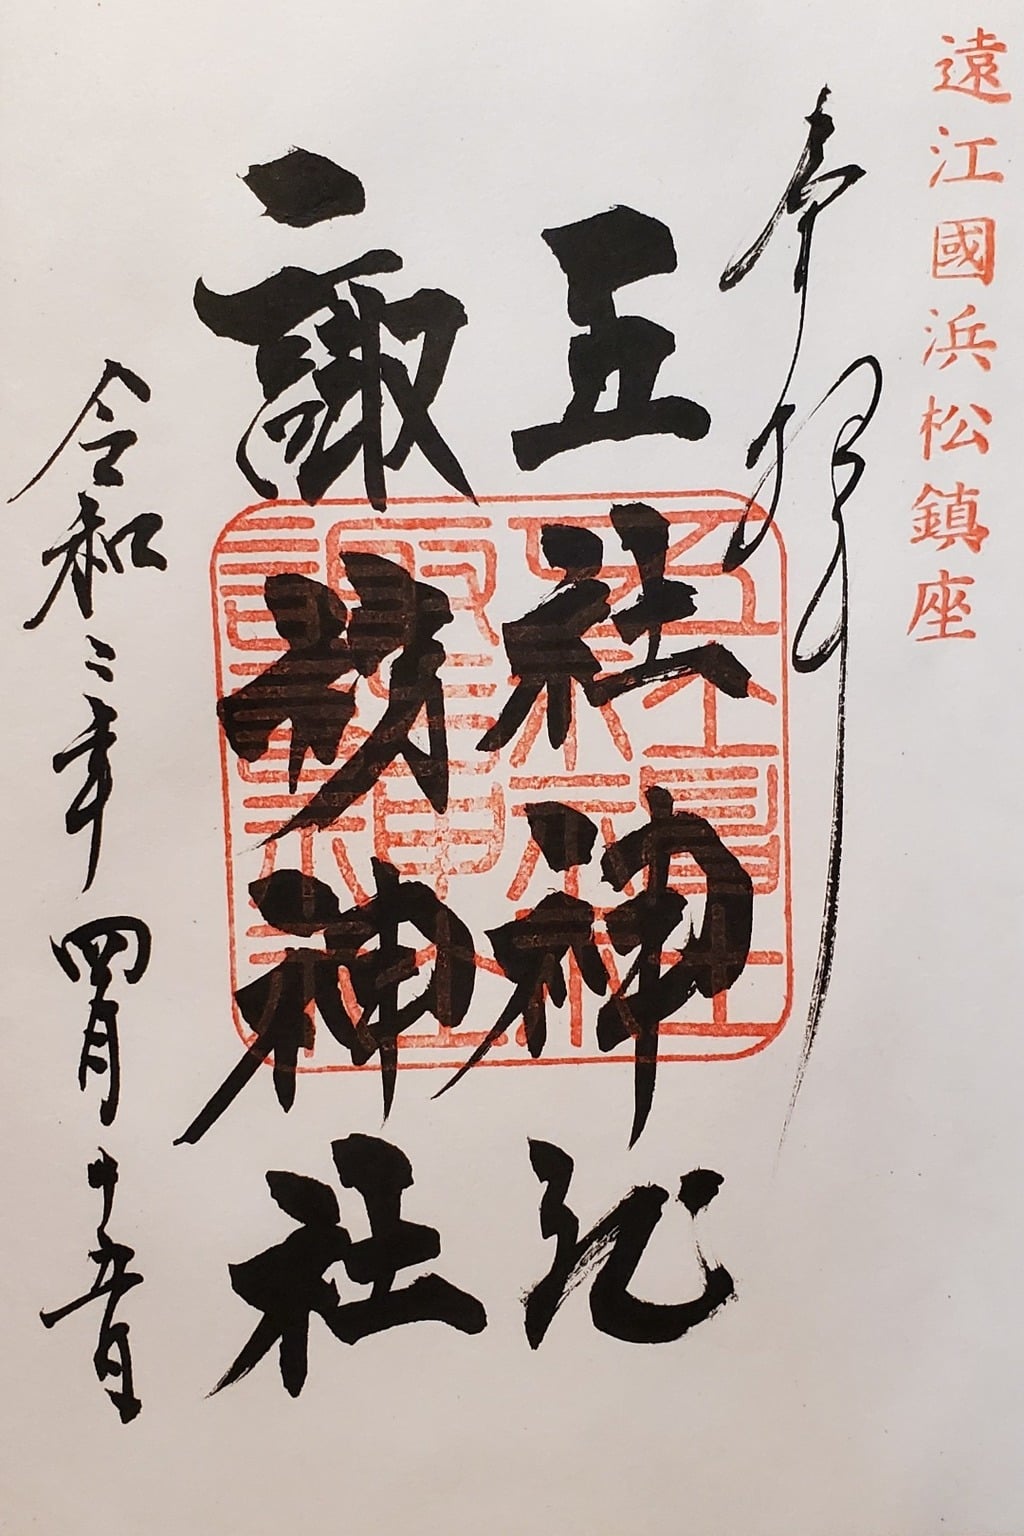 遠江國浜松鎮座
奉拝
五社神社
諏訪神社
令和二年四月十五日
五社神社
諏訪神社